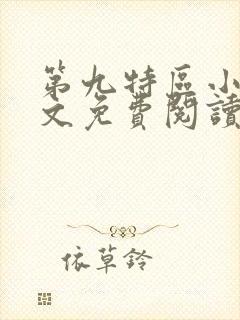 第九特區小
文免費閱讀
依草鈴